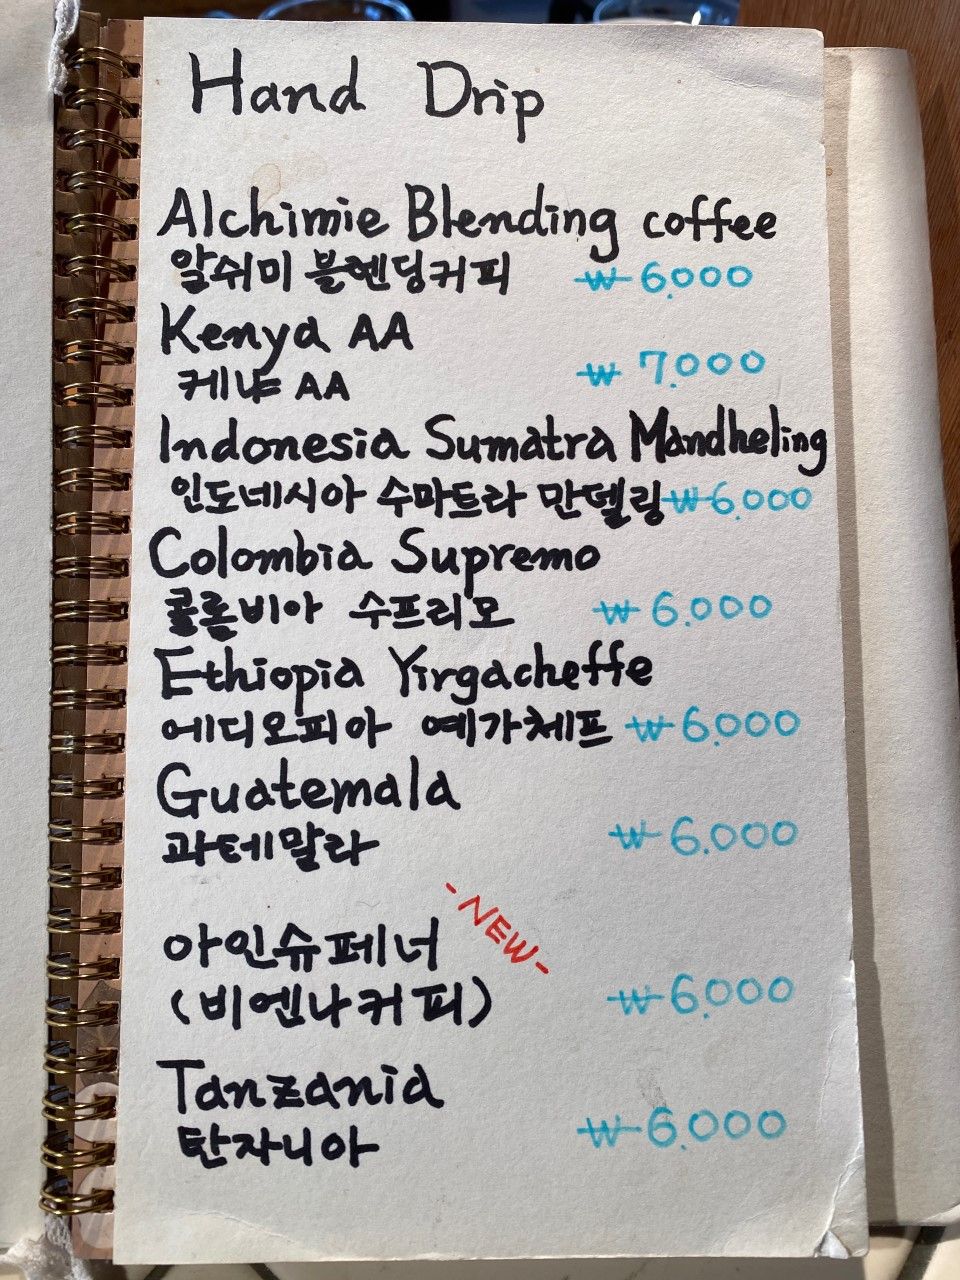 Hand Drip
Alchimie Blending coffee
알쉬미 블렌딩커피 ₩ 6.000
Kenya AA
케냐 AA ₩ 7.000
Indonesia Sumatra Mandheling
인도네시아 수마트라 만델링 ₩ 6.000
Colombia Supremo
콜롬비아 수프리모 ₩ 6.000
Ethiopia Yirgacheffe
에디오피아 예가체프 ₩ 6.000
Guatemala
과테말라 ₩ 6.000
-NEW-
아인슈페너
(비엔나커피) ₩ 6.000
Tanzania
탄자니아 ₩ 6.000